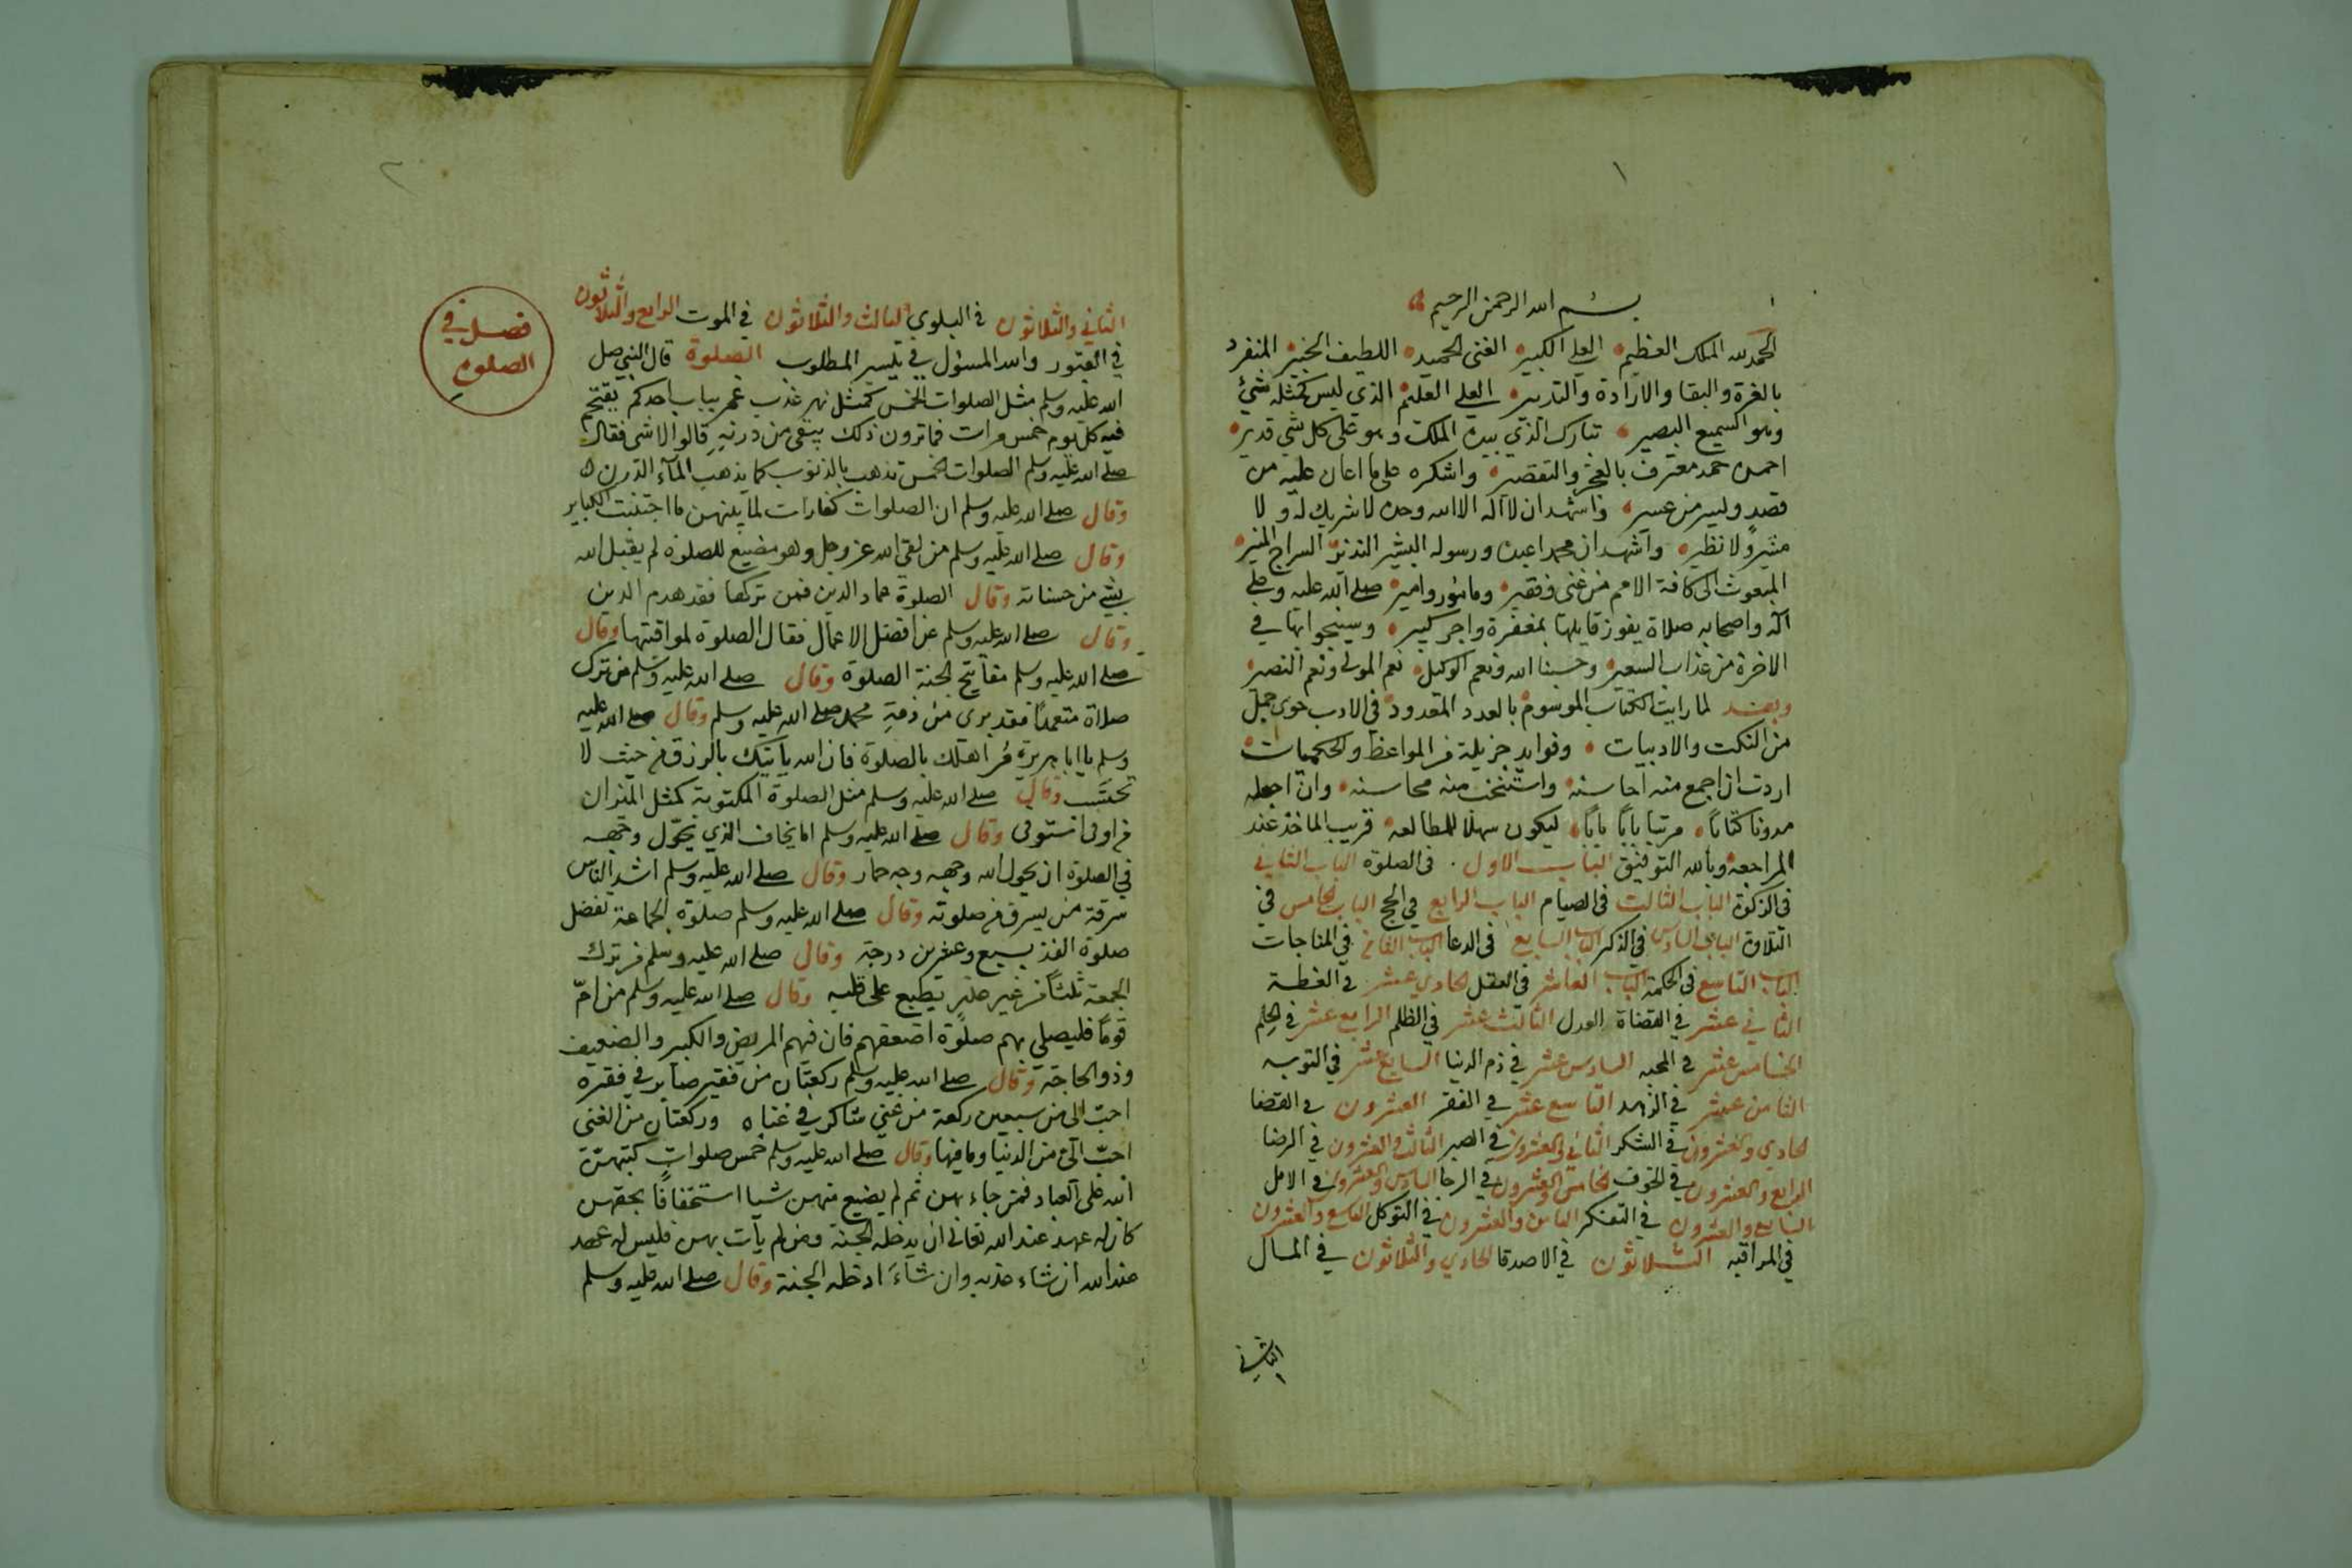 ١
بسم الله الرحمن الرحيم
الحمد لله الملك العظيم العلي الكبير الغنى الحميد اللطيف الخبير المنفرد
بالعزة والبقا والارادة والتدبير العلي العليم الذي ليس كمثله شيء
وهو السميع البصير تبارك الذي بيده الملك وهو على كل شي قدير
احمده حمد معترف بالعجز والتقصير واشكره على ما اعان عليه من
قصد ويسر من عسير واشهد ان لا اله الا الله وحده لا شريك له ولا
مشير ولا نظير واشهد ان محمدا عبده ورسوله البشير النذير السراج المنير
المبعوث الى كافة الامم من غنى وفقير ومامور وامير صلى الله عليه وعلى
اله واصحابه صلاة يفوز قايلها بمغفرة واجر كبير وسينجوا بها في
الاخرة من عذاب السعير وحسبنا الله ونعم الوكيل نعم المولى ونعم النصير
وبعد لما رايت الكتاب الموسوم بالعدد المعدود في الادب حوى جمل
من النكت والادبيات وفوايد جزيلة من المواعظ والحكميات
اردت ان اجمع منه احاسنه واستنخب منه محاسنه وان اجعله
مدونا كتابا مرتبا بابا بابا ليكون سهلا للمطالعه قريب الماخذ عند
المراجعه وبالله التوفيق الباب الاول فى الصلوة الباب الثاني
فى الزكوة الباب الثالث فى الصيام الباب الرابع في الحج الباب الخامس في
التلاوة الباب السادس في الذكر الباب السابع فى الدعا الباب الثامن في المناجات
الباب التاسع فى الحكمة الباب العاشر فى العقل الحادي عشر في العظة
الثاني عشر في القضاة العدل الثالث عشر في الظلم الرابع عشر في الحلم
الخامس عشر في المحبه السادس عشر في ذم الدنيا السابع عشر في التوبه
الثامن عشر في الزهد التاسع عشر في الفقر العشرون في القضا
الحادي والعشرون في الشكر الثاني والعشرون في الصبر الثالث والعشرون في الرضا
الرابع والعشرون في الخوف الخامس والعشرون في الرجا السادس والعشرون في الامل
السابع والعشرون في التفكر الثامن والعشرون في التوكل التاسع والعشرون
في المراقبه الثلاثون في الاصدقا الحادي والثلاثون في المال
الثاني
٢
الثاني والثلاثون في البلوي الثالث والثلاثون في الموت الرابع والثلاثون
في القبور والله المسؤل في تيسير المطلوب الصلوة قال النبي صلى
الله عليه وسلم مثل الصلوات الخمس كمثل نهر عذب غمر بباب احدكم يقتحم
فيه كل يوم خمس مرات فما ترون ذلك يبقى من درنه قالوا لا شى فقال
صلى الله عليه وسلم الصلوات الخمس تذهب بالذنوب كما يذهب المآء الدرن
وقال صلى الله عليه وسلم ان الصلوات كفارات لما بينهن ما اجتنبت الكباير
وقال صلى الله عليه وسلم من لقي الله عز وجل وهو مضيع للصلوة لم يقبل الله
بشي من حسناته وقال الصلوة عماد الدين فمن تركها فقد هدم الدين
وقال صلى الله عليه وسلم عن افضل الاعمال فقال الصلوة لمواقيتها وقال
صلى الله عليه وسلم مفاتيح الجنة الصلوة وقال صلى الله عليه وسلم من ترك
صلاة متعمدًا فقد برى من ذمة محمد صلى الله عليه وسلم وقال صلى الله عليه
وسلم يا ابا هريرة مُر اهلك بالصلوة فان الله ياتيك بالرزق من حيث لا
تحتسب وقال صلى الله عليه وسلم مثل الصلوة المكتوبة كمثل الميزان
من اوفى استوفى وقال صلى الله عليه وسلم اما يخاف الذي يحوّل وجهه
في الصلوة ان يحول الله وجهه وجه حمار وقال صلى الله عليه وسلم اشد الناس
سرقة من يسرق من صلوته وقال صلى الله عليه وسلم صلوة الجماعة تفضل
صلوة الفذ بسبع وعشرين درجة وقال صلى الله عليه وسلم من ترك
الجمعة ثلثًا من غير عذر يطبع على قلبه وقال صلى الله عليه وسلم من امّ
قومًا فليصلي بهم صلوة اضعفهم فان فيهم المريض والكبير والضعيف
وذو الحاجة وقال صلى الله عليه وسلم ركعتان من فقير صابر في فقره
احبّ الى من سبعين ركعة من غني شاكر في غناه وركعتان من الغنى
احبّ الى من الدنيا وما فيها وقال صلى الله عليه وسلم خمس صلوات كتبهنّ
الله على العباد فمن جاء بهن ثم لم يضيع منهن شيا استخفافًا بحقهن
كان له عهد عند الله تعالى ان يدخله الجنة ومن لم يأت بهن فليس له عهد
عند الله ان شاء عذبه وان شاءَ ادخله الجنة وقال صلى الله عليه وسلم
فصل في
الصلوه